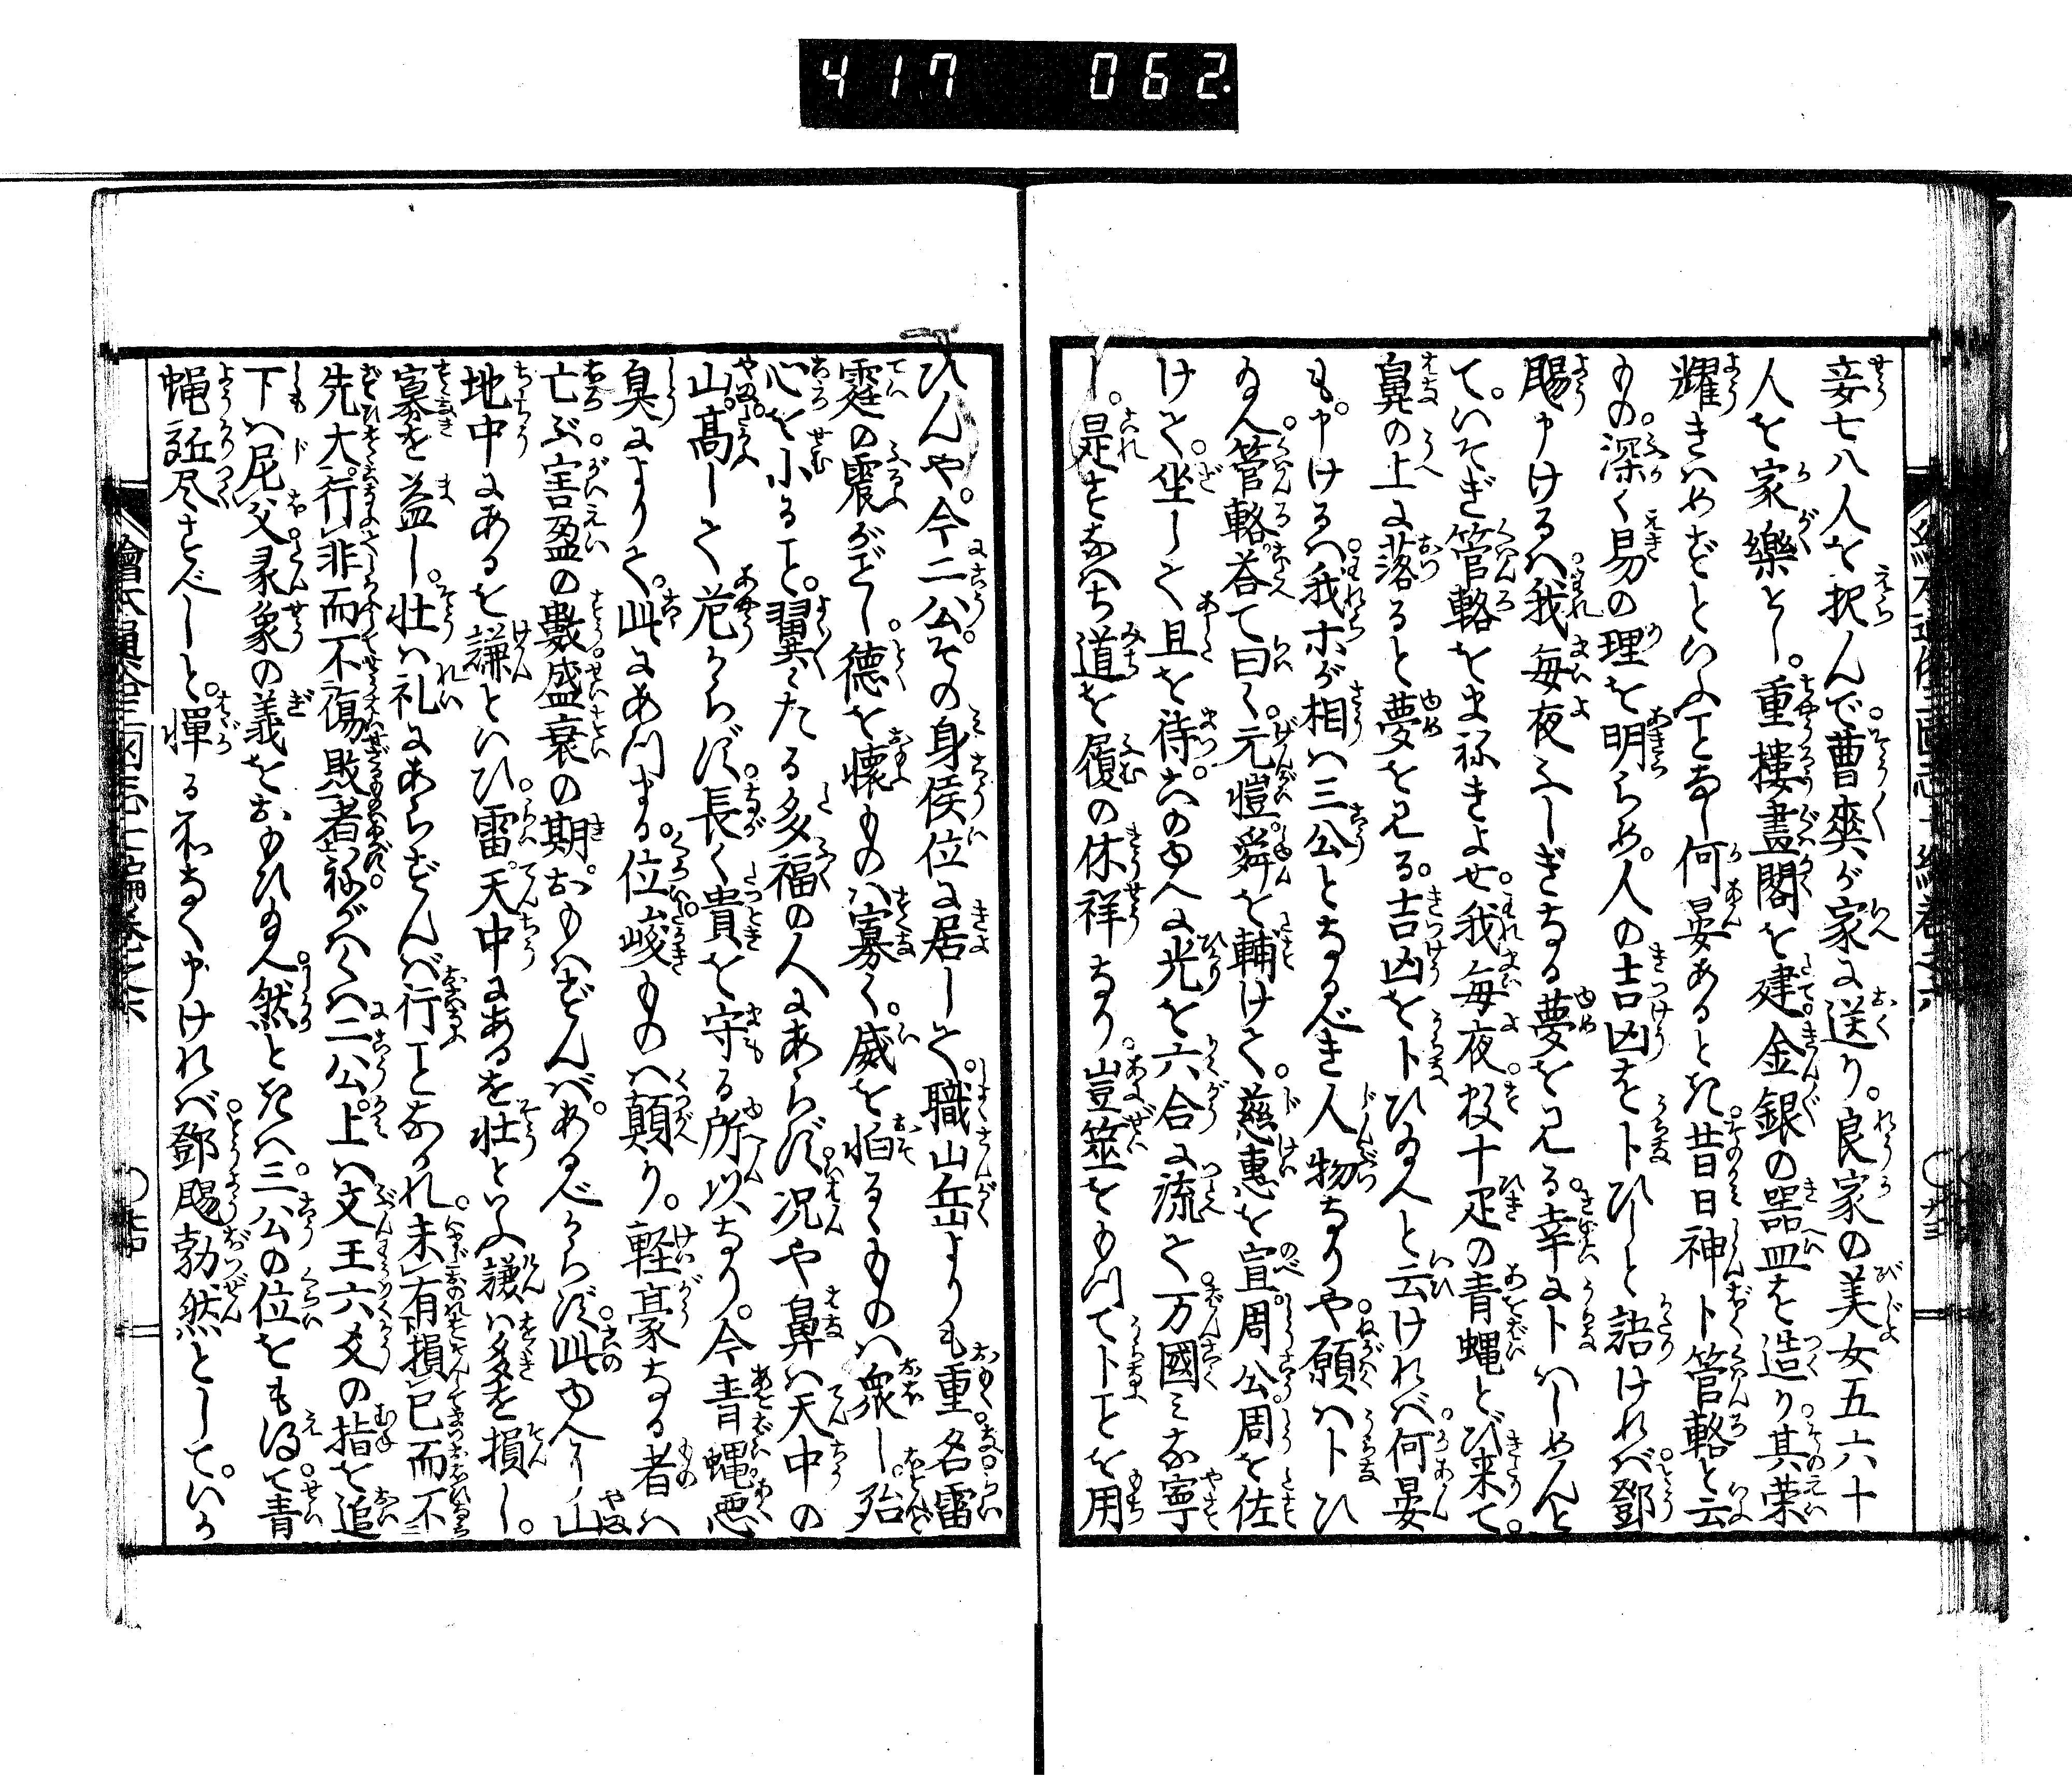 417 062.
妾七八人を択んで。曹爽が家に送り。良家の美女五六十
人を家樂とし。重樓畫閣を建。金銀の噐皿を造り。其栄
耀きはめずといふ事なし何晏あるとき。昔日神卜管輅と云
もの。深く易の理を明らめ。人の吉凶を卜ひしと語けれバ。鄧
颺申けるハ。我毎夜ふしぎなる夢を見る。幸に卜ハしめんと
て。いそぎ管輅をまねきよせ。我毎夜。数十疋の青蝿とび来て。
鼻の上に落ると夢を見る。吉凶を卜ひ給へと云けれバ。何晏
も。申けるハ。我ホが相ハ三公となるべき人物なりや。願ハ卜ひ
給へ。管輅荅て曰く。元愷。舜を輔けて。慈惠を宣。周公。周を佐
けて。坐して旦を待。故のゆへに光を六合に流て。万國ミな寧
し。是すなハち道を履の休祥なり。豈筮をもつて卜事を用
ひんや。今二公。その身侯位に居して。職山岳よりも重。名雷
霆の震がごとし。德を懐ものハ寡く。威を怕るゝものハ衆し。殆
心を小ること。翼〻たる多福の人にあらず。况や鼻ハ天中の
山。髙して危からず。長く貴を守る所以なり。今青蝿。悪
臭によりて。此にあつまる。位峻ものハ顛り。軽豪なる者ハ
亡ぶ。害盈の數。盛衰の期。おもハずんバ。あるべからず。此ゆへに山
地中にあるを謙といひ。雷。天中にあるを壮といふ謙ハ多を損し。
寡を益し。壮ハ礼にあらずんバ行ことなかれ。未有損已而不
先大。行非而不傷敗者。ねがハくハ二公。上ハ文王六爻の指を追
下ハ尼父彖象の義をおもひ給へ。然ときハ。三公の位をも得て青
蝿近尽さすべしと。憚る所なく申けれバ。鄧颺勃然として。いか